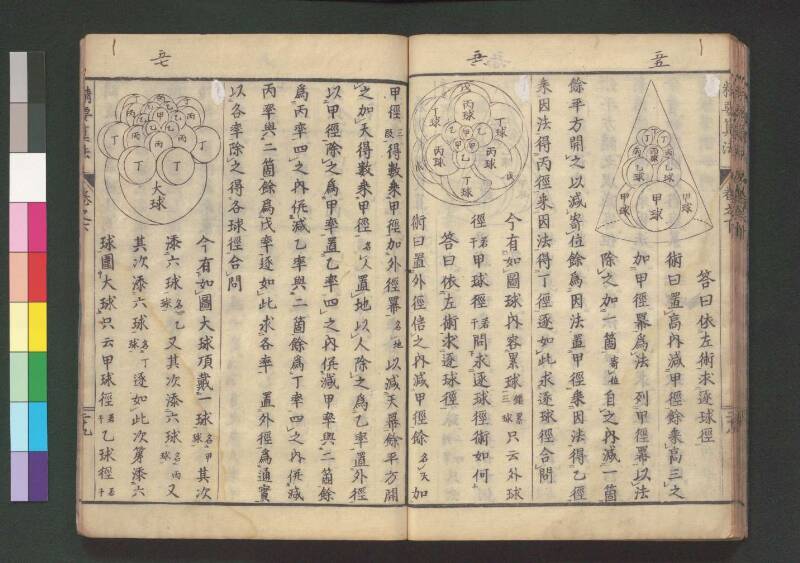 五
答曰依左術求逐球徑
術曰置高内減甲徑餘乗高三之
加甲徑冪為法来列甲徑冪以法
除之加一箇寄位自之内減一箇
餘平方開之以減寄位餘為因法置甲徑乗因法得乙徑
乗因法得丙徑来因法得丁徑逐如此求逐球徑合問
今有如圖球内容累球只云外球
徑若干甲球徑若干問求逐球徑術如何
答曰依左術求逐球徑
術曰置外徑倍之内減甲徑餘名天加
甲徑三段得數乗甲徑加外徑冪名地以減天冪餘平方開
之加天得數乗甲徑名人置地以人除之為乙率置外徑
以甲徑除之為甲率置乙率四之内併減甲率與二箇餘
為丙率四之内併減乙率與二箇餘為丁率四之内併減
丙率與二箇餘為戊率逐如此求各率置外徑為通實
以各率除之得各球徑合問
今有如圖大球項戴一球名甲球其次
漆六球名乙球又其次漆六球名丙球又
其次漆六球名丁球逐如此次第漆六
球圍大球只云甲球徑若干乙球徑若干
甲球
乙球
丙球
丁球
戊
大球